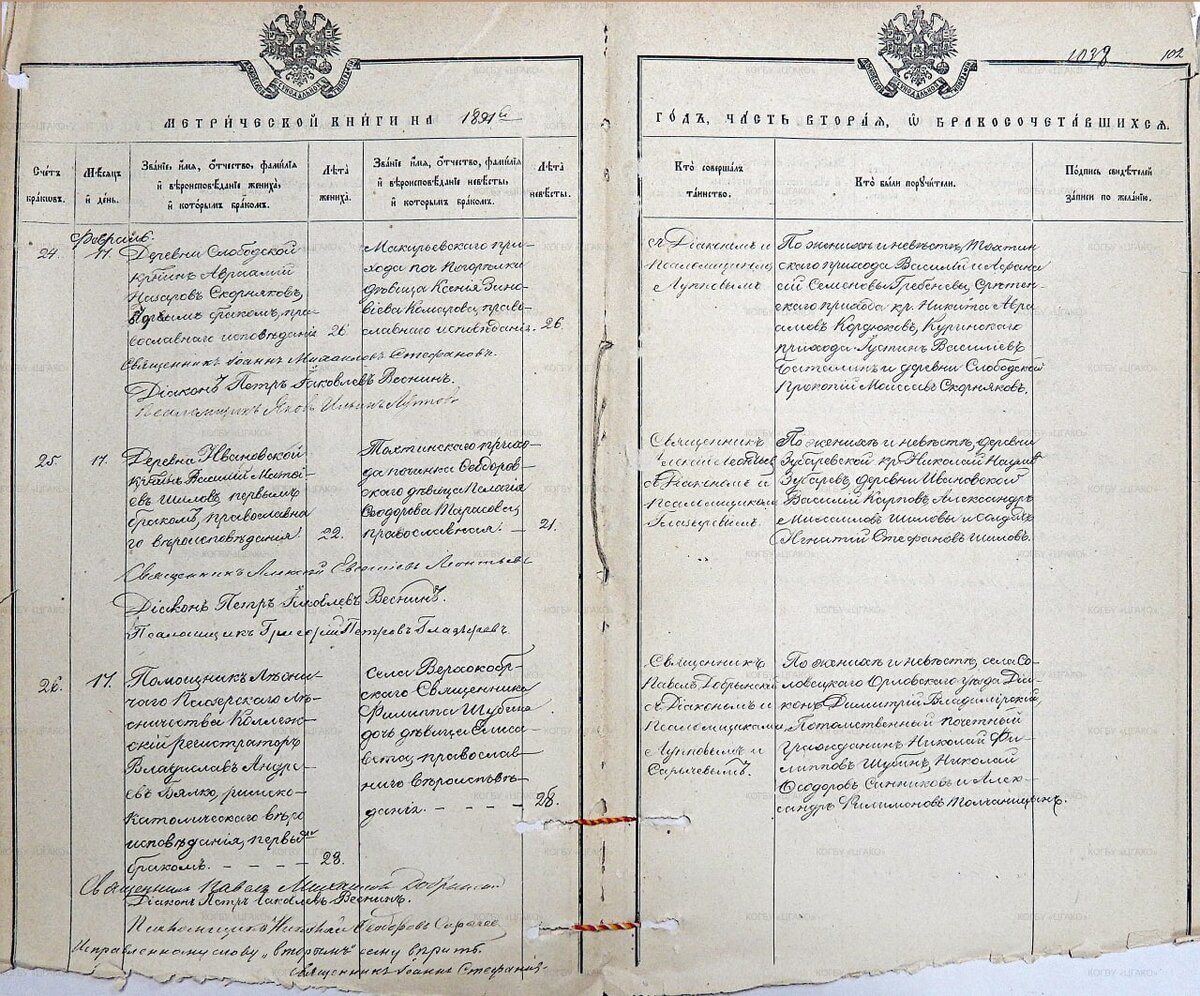 1038
102
МЕТРИЧЕСКОЙ КНИГИ НА 1891й
ГОДЪ, ЧАСТЬ ВТОРАЯ, Ѡ БРАКОСОЧЕТАВШИХСЯ.
Счетъ браковъ.
Мѣсяцъ и день.
Званіе, имя, отчество, фамилія
и вѣроисповѣданіе жениха,
и которымъ бракомъ.
Лѣта
жениха.
Званіе имя, отчество, фамилія
и вѣроисповѣданіе невѣсты,
и которымъ бракомъ.
Лѣта
невѣсты.
Кто совершалъ
таинство.
Кто были поручители.
Подпись свидѣтелей
записи по желанію.
Февраль.
24.
17.
Деревни Слободской
кр҃нинъ Авраамій
Назаровъ Скорняковъ,
бракомъ, пра-
вославнаго исповѣданія
26
Макарьевскаго при-
хода поч. Погорѣлки
дѣвица Ксенія Зино-
віева Комарова, право-
славнаго исповѣданія.
26
съ Діакономъ и
Псаломщикомъ
Лупповымъ
По женихѣ и невѣстѣ, Тохтин
скаго прихода Василій и Аѳана
сій Семеновы Гребеневы, Срѣтен-
скаго прихода кр. Никита Авра
амовъ Кордюковъ, Куринскаго
прихода Іустинъ Василіевъ
Баталинъ и деревни Слободской
Прокопій Моисіевъ Скорняковъ.
Священникъ Іоаннъ Михаиловъ Стефановъ.
Діаконъ Петръ Іаковлевъ Веснинъ.
Псаломщикъ Яковъ Ильинъ Лупповъ
25.
17.
Деревни Ивановской
кр҃нинъ Василій Матѳі-
евъ Шиловъ, первымъ
бракомъ, православна
го вѣроисповѣданія
22.
Тохтинскаго прихо-
да починка Ѳеодоров-
скаго дѣвица Пелагія
Ѳеодорова Тарасова,
православная.
21.
Священникъ
Алексій Леонтьевъ
съ Діакономъ и
Псаломщикомъ
Глазыревымъ.
По женихѣ и невѣстѣ, деревни
Зубаревской кр. Николай Наумовъ
Зубаревъ, деревни Ивановской
Василій Карповъ, Александръ
Шиловы и Солдатъ
Игнатій Стефановъ Шиловъ.
Священникъ Алексій Евгеніевъ Леонтьевъ
Діаконъ Петръ Іаковлевъ Веснинъ.
Псаломщикъ Григорій Петровъ Глазыревъ.
26.
17.
Помощникъ Лѣсни-
чаго Лѣ-
сничества Коллеж-
скій регистраторъ
Владиславъ Андре-
евъ Бялко, римско-
католическаго вѣро
исповѣданія, первымъ
бракомъ.
28.
Села Верхокобр-
скаго Священника
Филиппа Шубина
дочь дѣвица Елиса-
вета, православ-
наго вѣроисповѣ-
данія.
28.
Священникъ
Павелъ Добрынскій
съ Діакономъ и
Псаломщиками
Лупповымъ и
Сарычевымъ.
По женихѣ и невѣстѣ, села Со-
ловецкаго Орловскаго уѣзда Діа-
конъ Димитрій Владимірскій,
Потомственный почетный
гражданинъ Николай Фи-
липповъ Шубинъ, Николай
Ѳеодоровъ Синниковъ и Алек-
сандръ Филимоновъ Молчаницынъ.
Священникъ Павелъ Михаиловъ Добрынскій
Діаконъ Петръ Іаковлевъ Веснинъ.
Псаломщикъ Николай Ѳеодоровъ Сарычевъ
Исправленному слову "вторымъ" сему вѣрить.
Священникъ Іоаннъ Стефановъ.
КОГБУ «ЦГАКО»